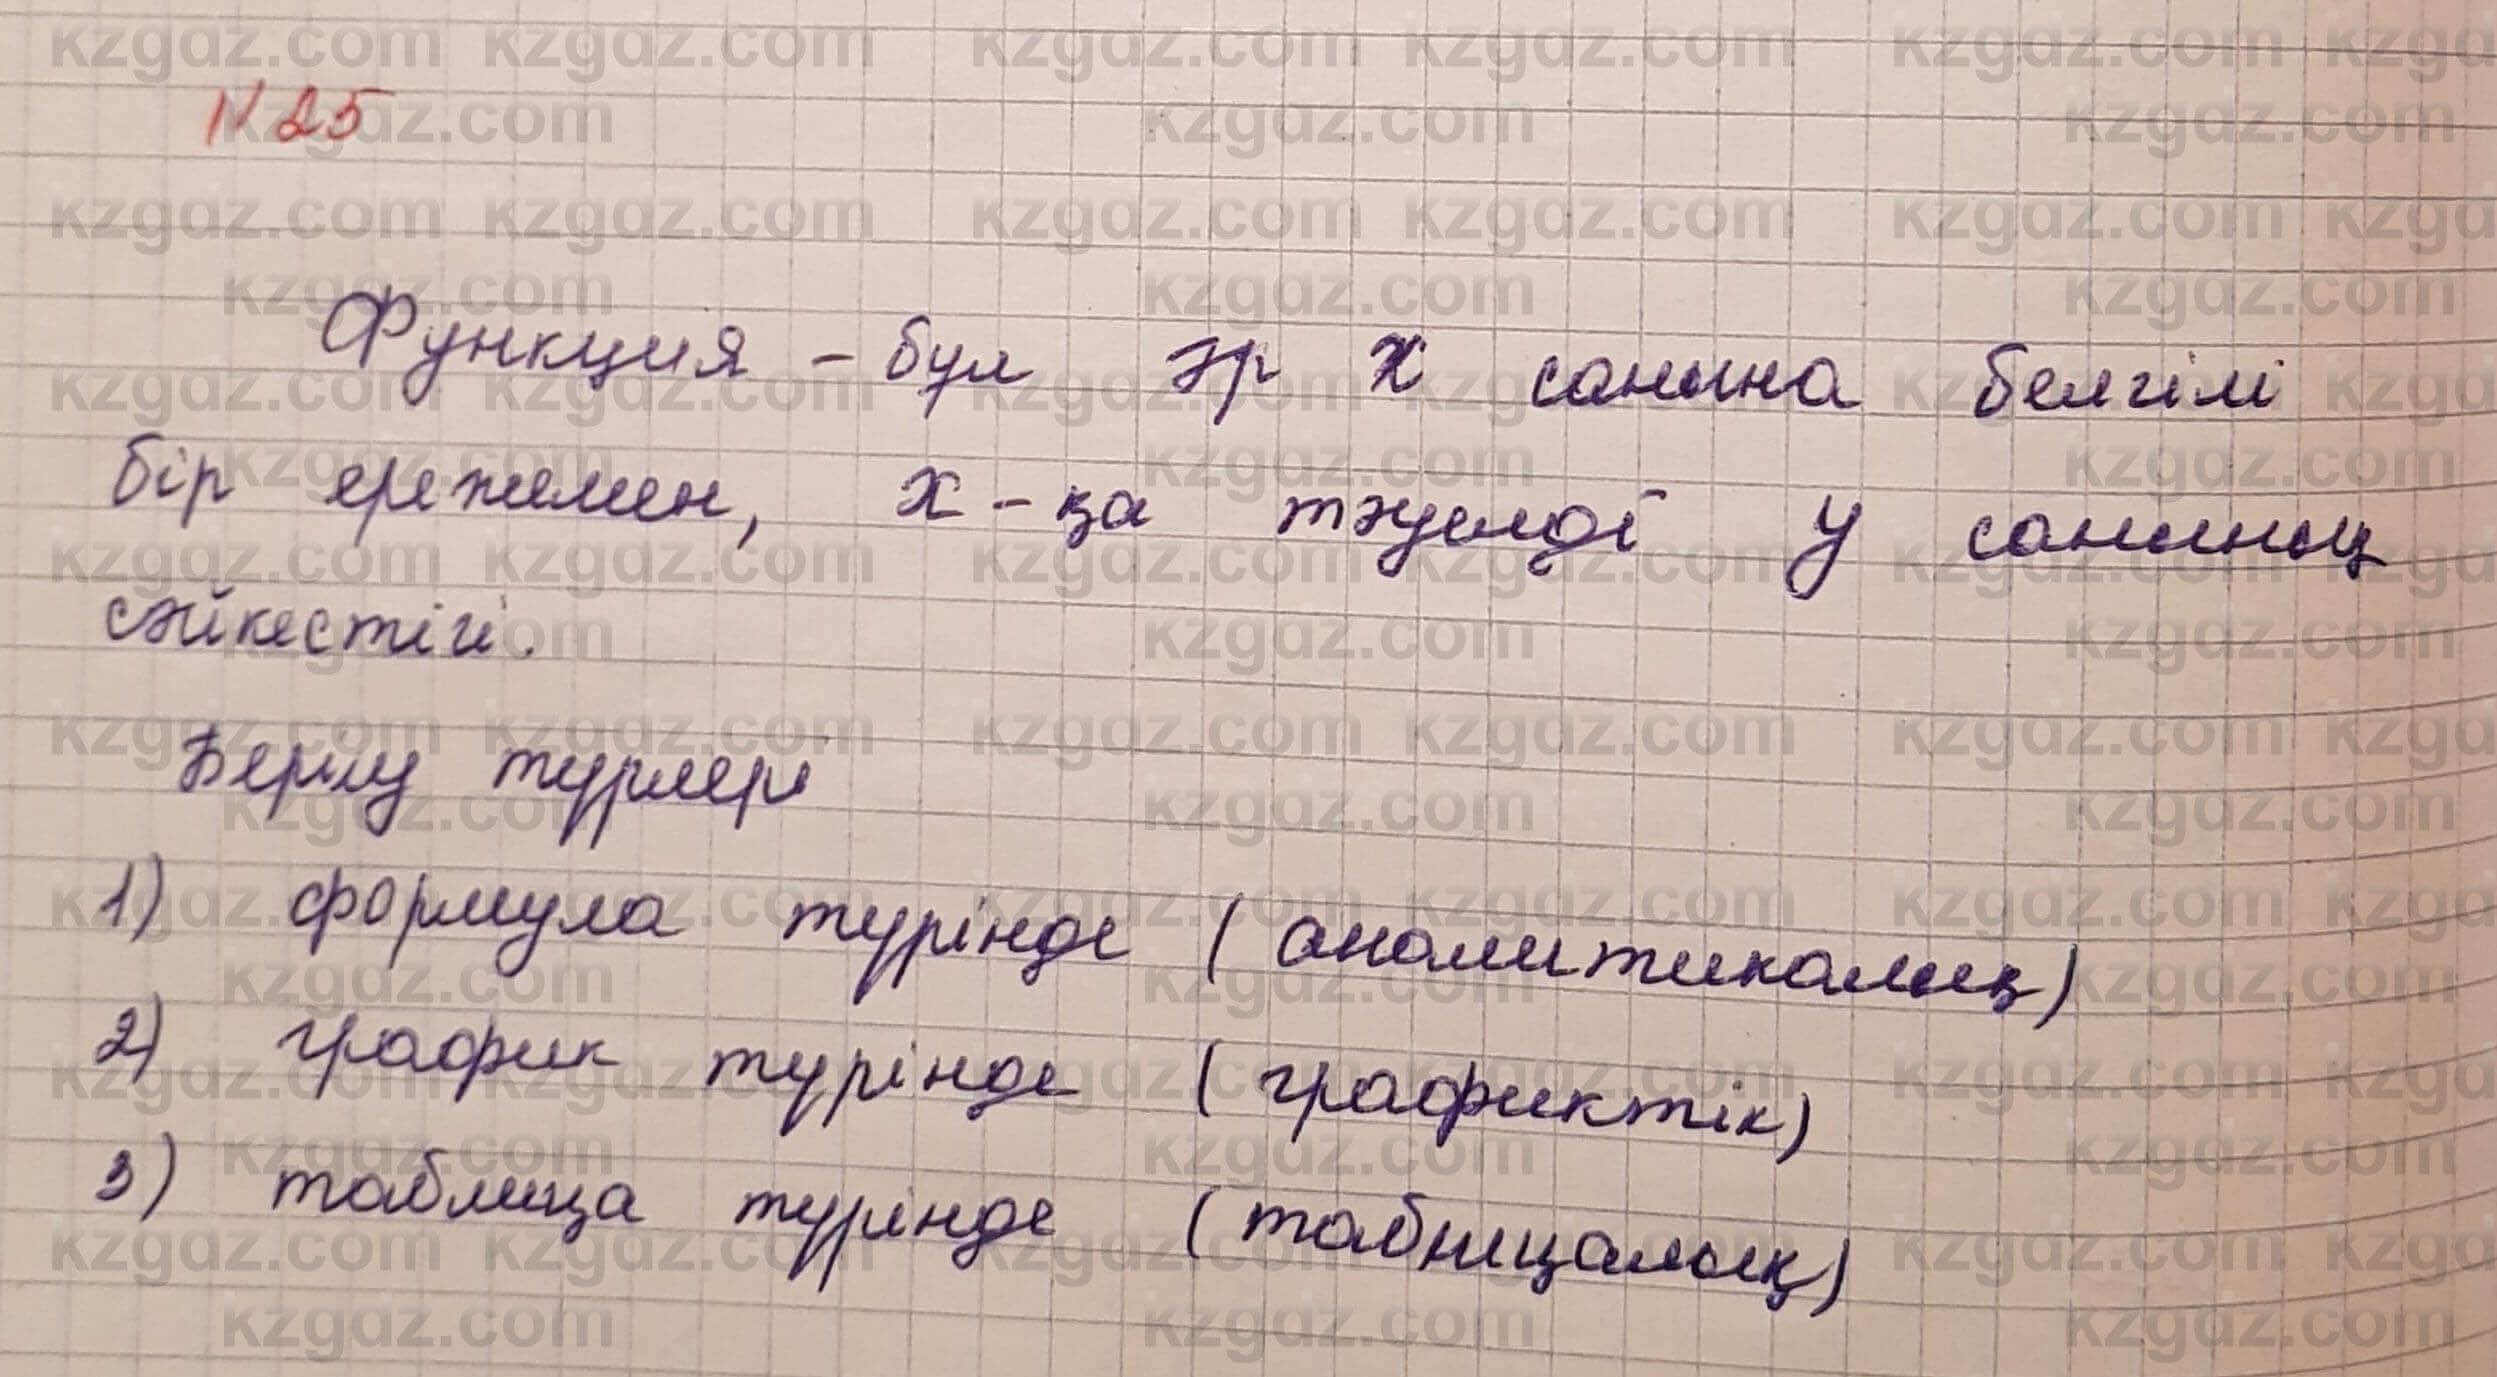 №25
Функция - бұл әр x санына белгілі
бір ережемен, x-қа тәуелді y санының
сәйкестігі.
Берілу түрлері
1) формула түрінде (аналитикалық)
2) график түрінде (графиктік)
3) таблица түрінде (таблицалық)
kzgdz.com